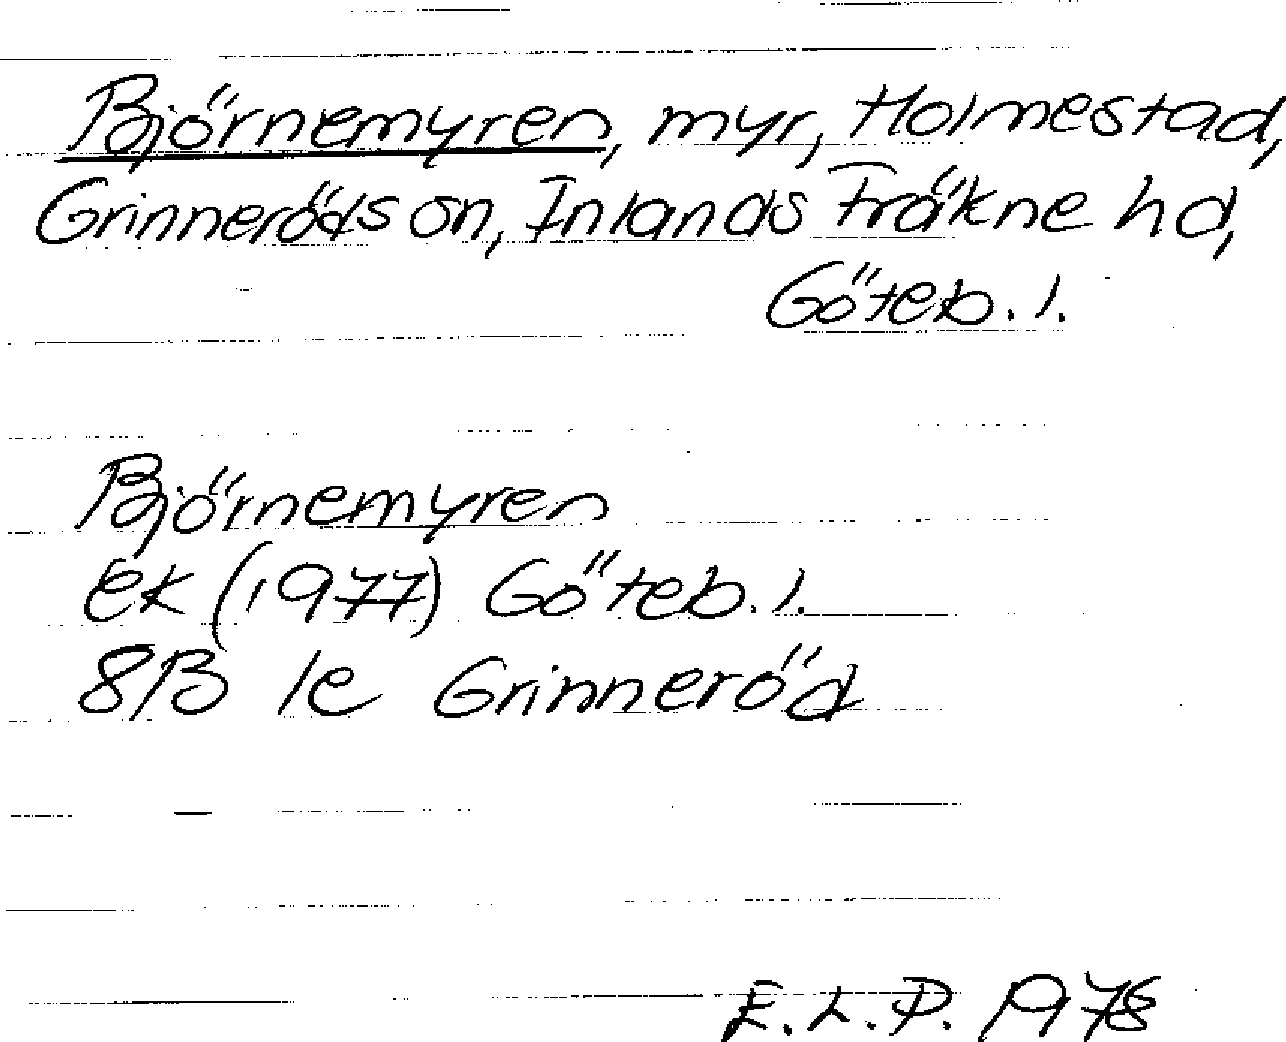 Björnemyren, myr, Holmestad,
Grinneröds sn, Inlands Fräkne hd,
Göteb. l.
Björnemyren
ek (1977) Göteb. l.
8B 1e Grinneröd
E.L.P. 1978